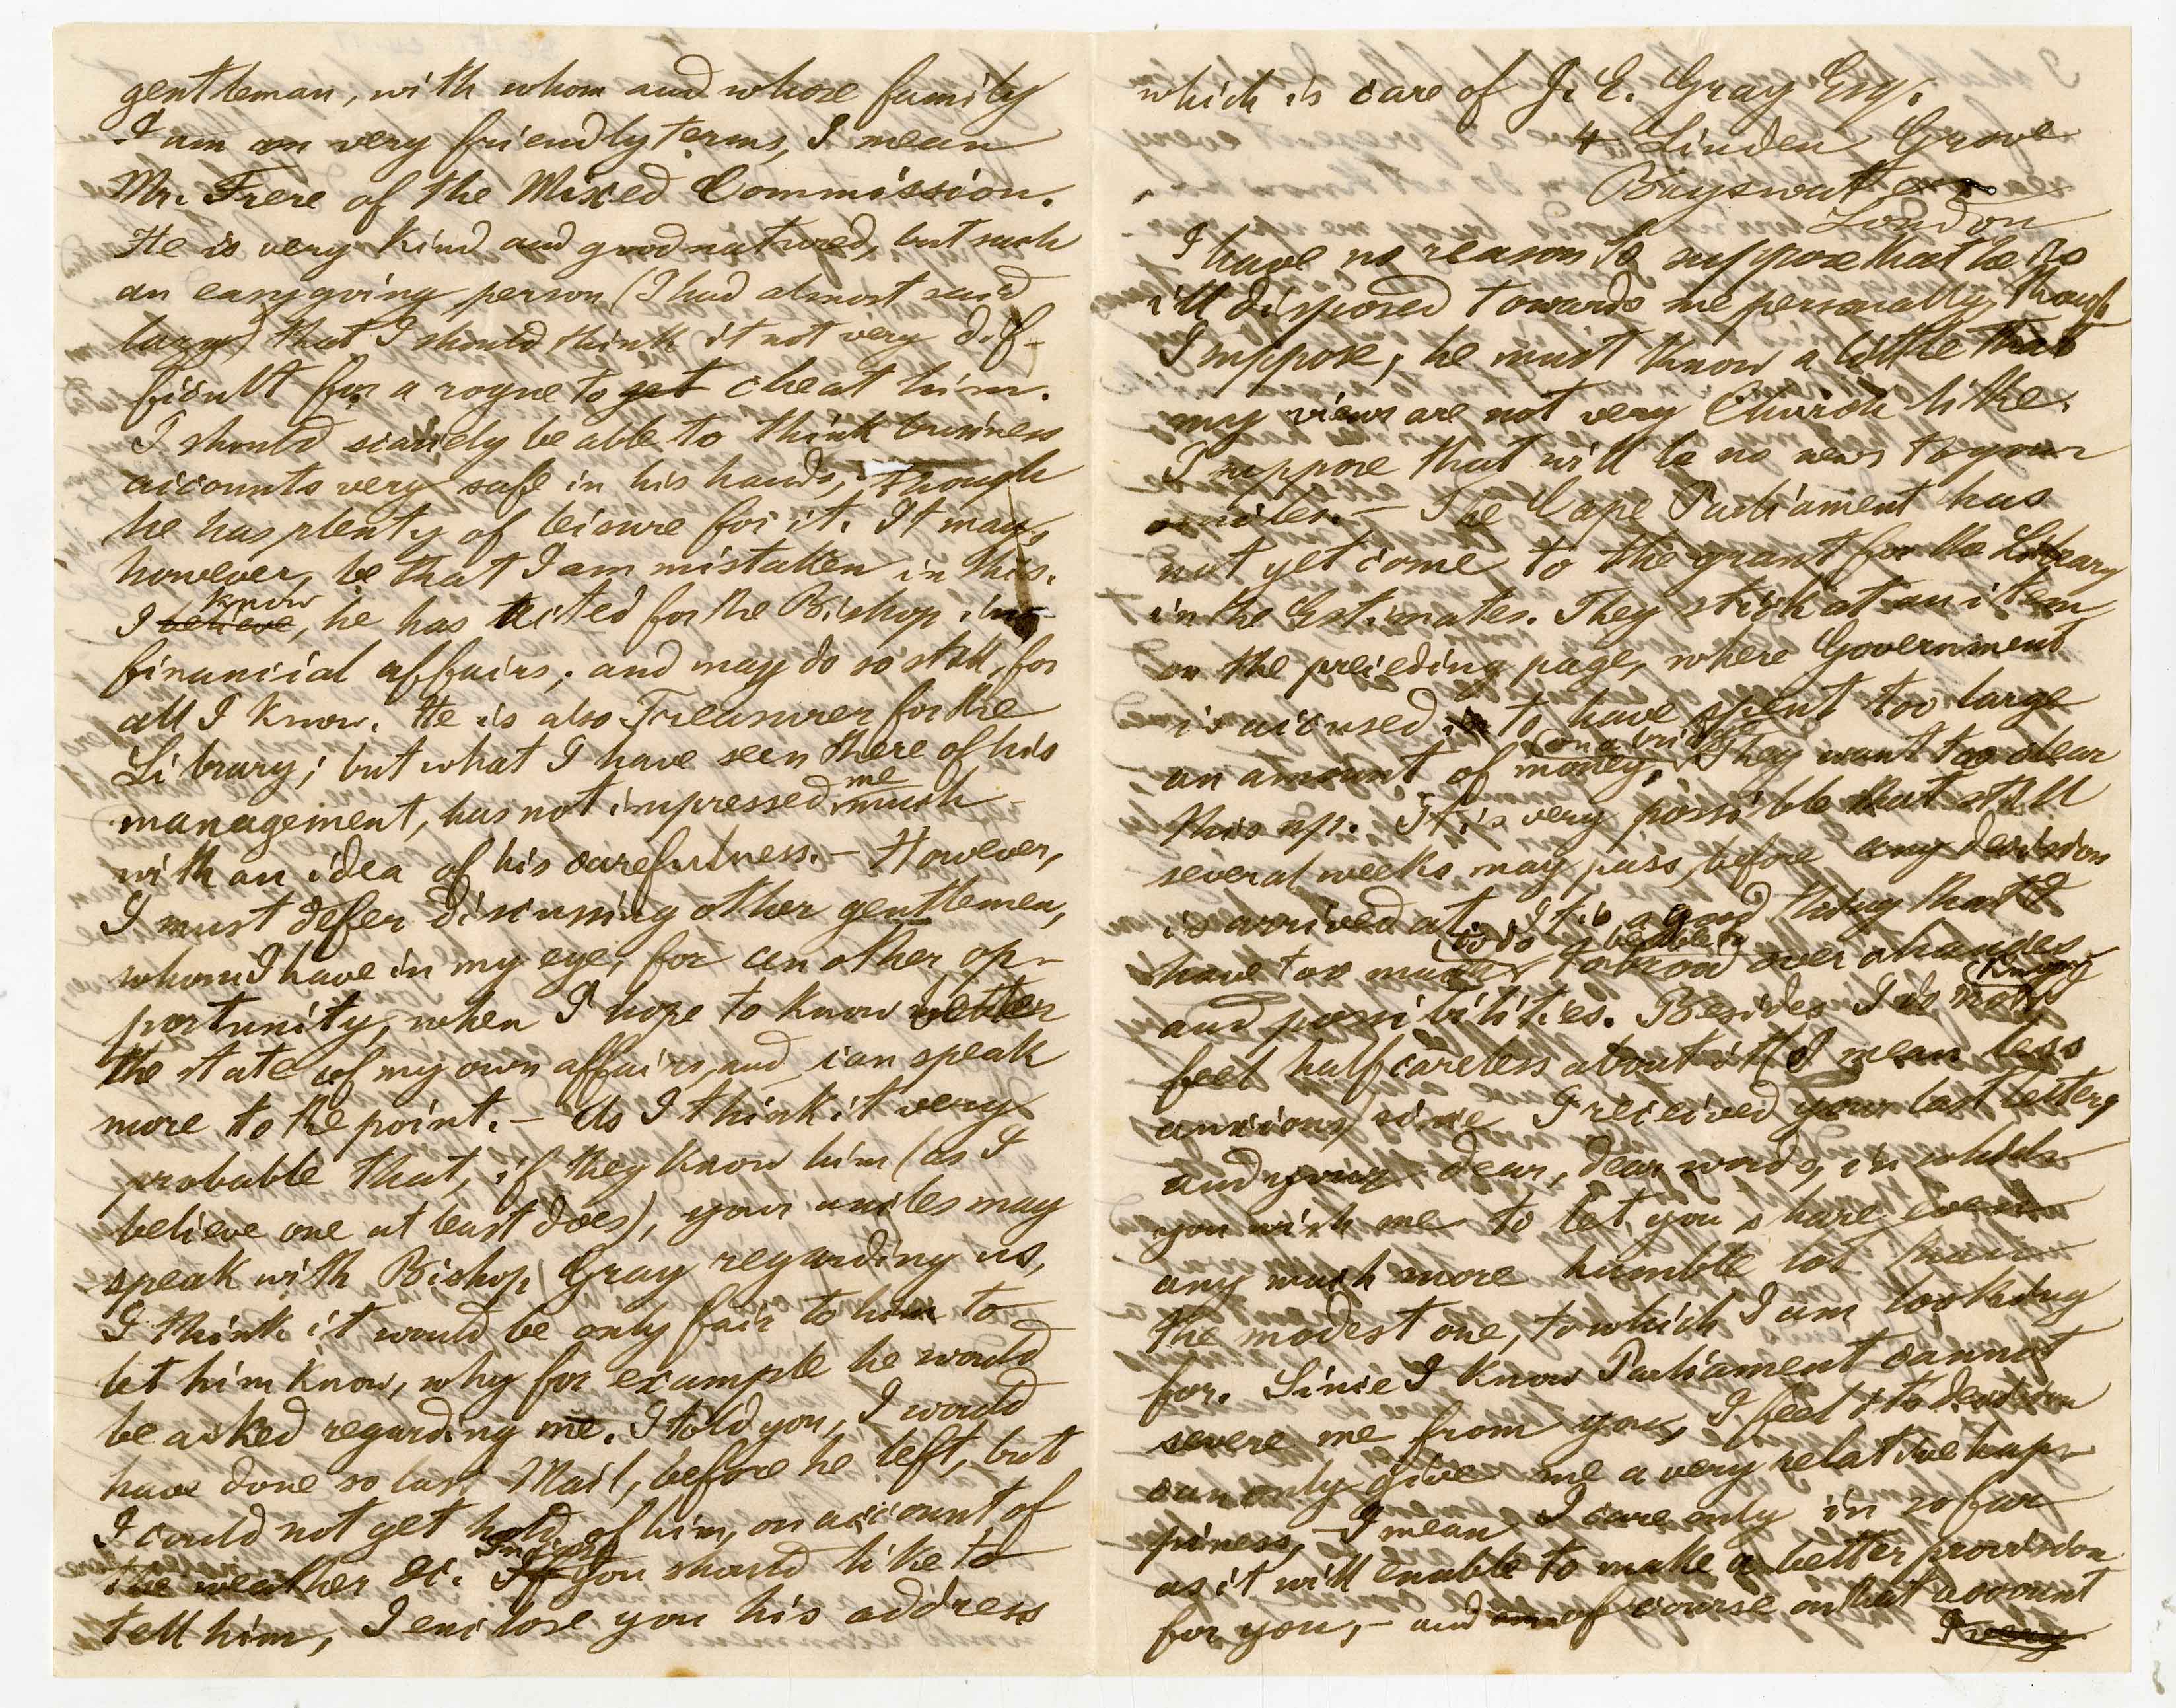 gentleman, with whom and whose family
I am on very friendly terms, I mean
Mr. Frere of the Mixed Commission.
He is very kind and goodnatured, but such
an easygoing person (I had almost said
lazy) that I should think it not very dif-
ficult for a rogue to get cheat him.
I should scarcely be able to think business
accounts very safe in his hands, though
he has plenty of leisure for it. It may,
however, be that I am mistaken in this.
know
I believe, he has acted for the Bishop in
financial affairs; and may do so still, for
all I know. He is also Treasurer for the
Library; but what I have seen there of his
me
management, has not impressed much
with an idea of his carefulness. – However,
I must defer discussing other gentlemen,
whom I have in my eye, for an other op-
portunity, when I hope to know better
the state of my own affairs, and can speak
more to the point. – As I think it very
probable that, if they know him (as I
believe one at least does), your uncles may
speak with Bishop Gray regarding us,
I think it would be only fair to him to
let him know, why for example he would
be asked regarding me. I told you, I would
have done so last Mail, before he left, but
I could not get hold of him, on account of
In case
the weather &c. If you should like to
tell him, I enclose you his address
which is care of J. E. Gray Esq.
4 Linden Grove
Bayswater
London
I have no reason to suppose that he is
ill disposed towards me personally, though
I suppose, he must know a little that
my views are not very Church like.
I suppose that will be no news to your
uncles. – The Cape Parliament has
not yet come to the grant for the Library
in the Estimates. They stick at an item
on the preceding page, where Government
is accused to have spent too large
on a bridge
an amount of money. They want to clear
this up. It is very possible that still
several weeks may pass, before any decision
is arrived at. It is a good thing that I
to do to be able
have too much to brood over chances
and possibilities. Besides I do not
feel half careless about it (I mean less
anxious) since I received your last letter,
and your dear, dear words, in which
you wish me to let you share even
any much more humble lot than
the modest one, to which I am looking
for. Since I know Parliament cannot
severe me from you, I feel its decision
can only give me a very relative hap-
piness, – I mean I care only in so far
as it will enable to make a better provision
for you, – and of course on that account
I very